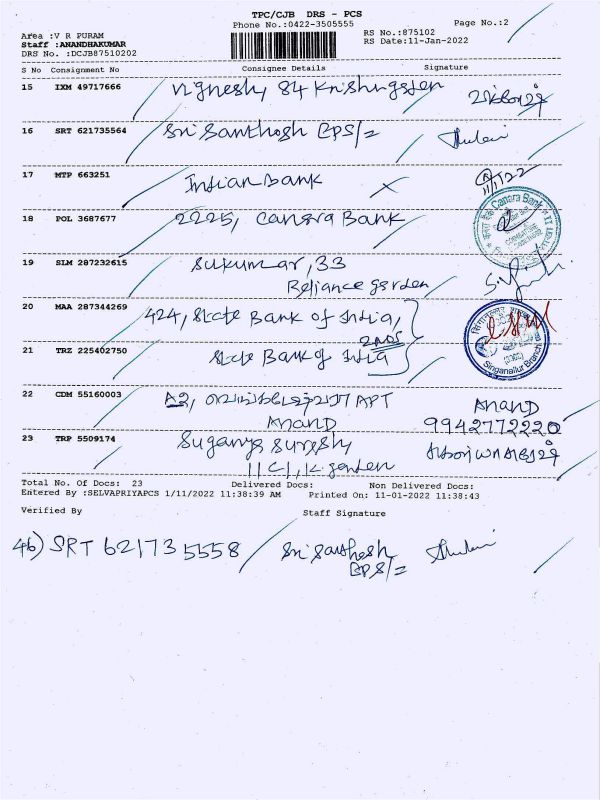 TPC/CJB DRS - PCS
Phone No.:0422-3505555
Page No.:2
Area :V R PURAM
RS No.:875102
Staff :ANANDHAKUMAR
RS Date:11-Jan-2022
DRS No. :DCJB87510202
S No Consignment No Consignee Details Signature
15 IXM 49717666 Vignesh, 84 Krishnagarden
16 SRT 621735564 Sri Santhosh EPS/=
17 MTP 663251 Indian Bank X 11/1/22
18 POL 3687677 2225, Canara Bank
Canara Bank
19 SLM 287232615 Sukumar, 33
Reliance garden
20 MAA 287344269 424, State Bank of India,
2nos
21 TRZ 225402750 State Bank of India
Singanallur Branch
22 CDM 55160003 A2, APT Anand
Anand 9942772220
23 TRP 5509174 Suganya Suresh
11C1, K garden
Total No. Of Docs: 23 Delivered Docs: Non Delivered Docs:
Entered By :SELVAPRIYAPCS 1/11/2022 11:38:39 AM Printed On: 11-01-2022 11:38:43
Verified By Staff Signature
46) SRT 621735558 Sri Santhosh
EPS/=